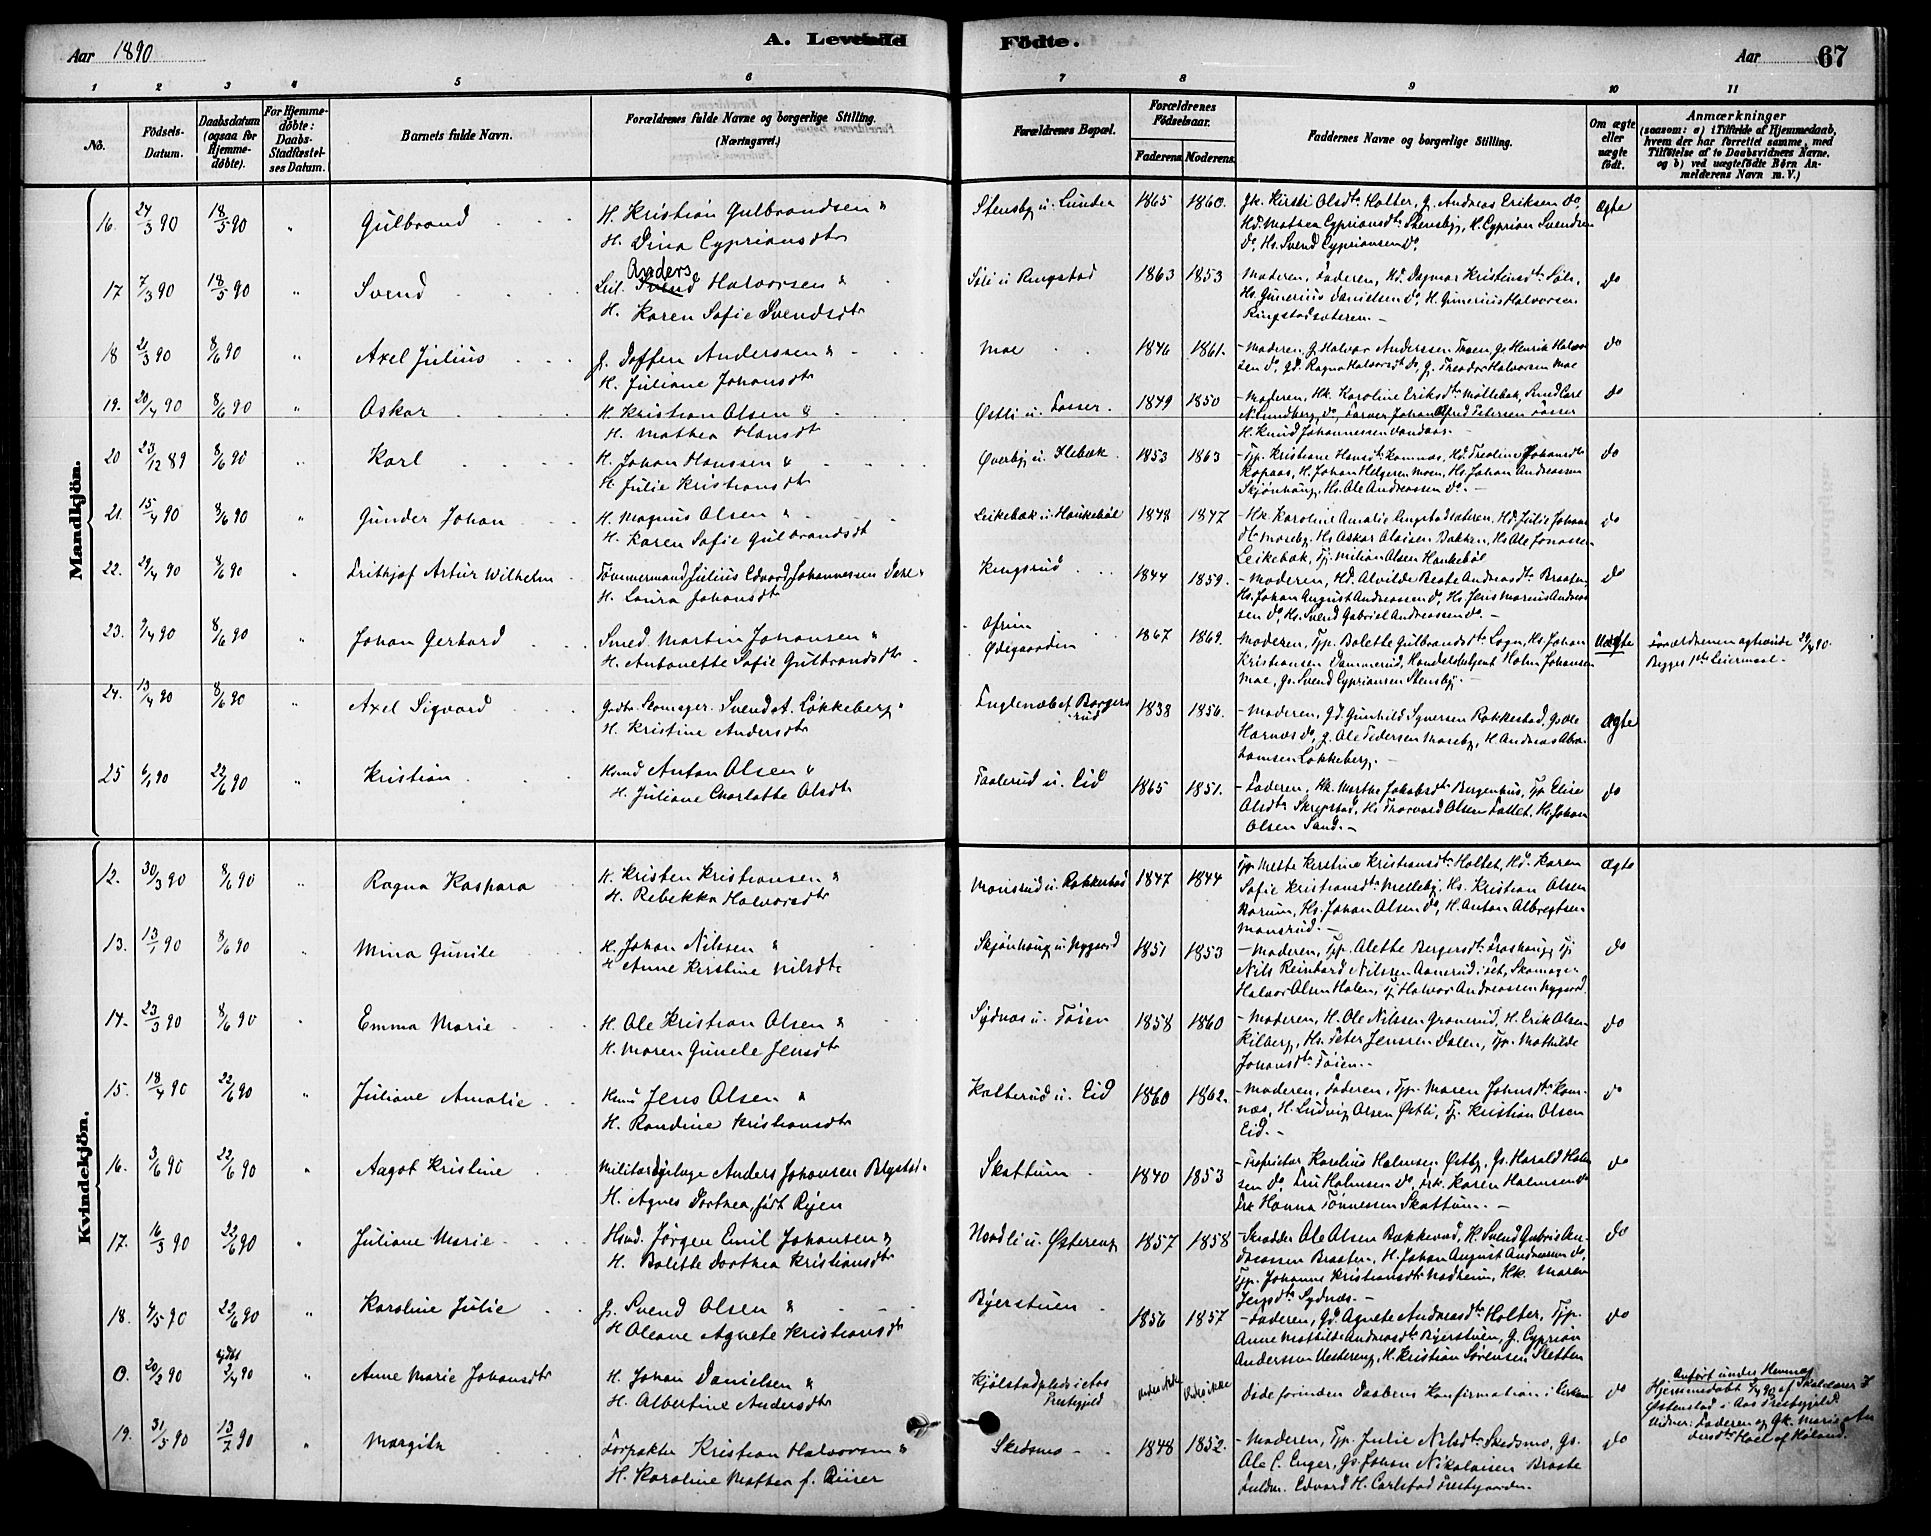 Aar 1890
A. Levende Fødte.
Aar 67
1 2 3 4 5 6 7 8 9 10 11
No.
Fødsels-Datum.
Daabsdatum (ogsaa for Hjemme-døbte).
For Hjemme-døbte: Daabs-Stadfæstel-ses Datum.
Barnets fulde Navn.
Forældrenes fulde Navne og borgerlige Stilling. (Næringsvei.)
Forældrenes Bopæl.
Forældrenes Fødselsaar.
Faderens. Moderens.
Faddernes Navne og borgerlige Stilling.
Om ægte eller uægte født.
Anmærkninger
(saasom: a) i Tilfælde af Hjemmedaab, hvem der har forrettet samme, med Tilføielse af to Daabsvidners Navne, og b) ved uægtefødte Børn Anmelderens Navn m. V.)
Mandkjön.
16. 24/3 90 18/5 90 " Gulbrand H. Kristian Gulbrandsen &
H. Dina Cypriansdtr
Stensby u. Lunder 1865 1860. Gk. Kirsti Olsdtr Holter, G. Andreas Eriksen do,
Hd. Mathea Cypriansdtr Stensby, H. Cyprian Svendsen
do, Hs. Svend Cypriansen do.
Ægte
17 7/3 90 18/5 90 " Svend
Anders
Halvorsen &
H. Karen Sofie Svendsdtr
Søli u Ringstad 1863 1853 - Moderen, Faderen, Hd. Dagmar Kristensdtr Søli,
Hs. Gunerius Danielsen do, H. Gunerius Halvorsen
Ringstadsæteren. -
do
18 2/3 90 8/6 90 " Axel Julius G. Doffen Anderssen &
H. Juliane Johansdtr
Moe 1846 1861. - Moderen, G. Halvor Anderssen Moen, Gs. Henrik Halvor-
sen do, Gd. Ragna Halvorsdtr do, G. Theodor Halvorsen Moe
do
19. 20/4 90 8/6 90 " Oskar H. Kristian Olsen &
H. Mathea Hansdtr
Østli u. Fosser. 1849 1850 - Moderen, Hk. Karoline Eriksdtr Møllebak, Carl
N. Lundberg do, Farver Johan Alfred Petersen Fosser
H. Knud Johannessen
do
20 23/12 89 8/6 90 " Karl H. Johan Hanssen &
H. Julie Kristiansdtr
Øverby u. Klebæk. 1853 1863 - Tjp. Kristiane Hansdtr Komnæs, Hd. Tredine Johansdtr
Kopaas, H. Johan Helgesen Moen, Hs. Johan Andreassen
Skjønhaug, Hs. Ole Andreassen do. -
do
21. 15/4 90 8/6 90 " Gunder Johan H. Magnus Olsen &
H. Karen Sofie Gulbrandsdt
Leikebæk u. Haukebøl 1848 1847 - Hk. Karoline Amalie Ringstadsæteren, Hd. Julie Johans-
dtr Moseby, Hs. Oskar Olaisen Bakken, Hs. Ole Jonassen
Leikebæk, Tj. Milian Olsen Haukebøl
do
22. 29/4 90 8/6 90 " Frithjof Artur Wilhelm Tømmermand Julius Edvard Johannessen Dahl &
H. Laura Johansdtr
Kingsrud 1844 1859. - Moderen, Hd. Alvilde Beate Andreasdtr Braaten,
Hs. Johan August Andreassen do, Hs. Jens Marius Andreas-
sen do, Hs. Svend Gabriel Andreassen do. -
do
23. 9/4 90 8/6 90 " Johan Gerhard Smed Martin Johansen &
H. Antonette Sofie Gulbrandsdtr
Ødegaarden 1867 1869. - Moderen, Tjp. Bolette Gulbrandsdtr Logn, Hs. Johan
Kristiansen Dammerud, Handelsbetjent Holm Johansen
Moe, Gs. Svend Cypriansen Stensby. -
Uægte Forældrenes ægteviede 29/4 90.
Begges 1ste Leiermaal.
24. 13/4 90 8/6 90 " Axel Sigvard Skomager Svend A. Løkkeberg &
H. Kristine Andersdtr
Englenæbet Borgers-
rud 1838 1856. - Moderen, Gd. Gunhild Syversen Rakkestad, Gs Ole
Harnæs do, G. Ole Pedersen Moseby, H. Andreas Abra-
hamsen Løkkeberg. -
Ægte
25 6/1 90 22/6 90 " Kristian Hsmd Anton Olsen &
H. Juliane Charlotte Olsdtr
Taalerud u. Eid 1865 1851. - Faderen, Hk. Marthe Jakobsdtr Bergenhus, Tjp. Elise
Olsdtr Skrepstad, Hs Thorvard Olsen Fallet, Hs. Johan
Olsen Sand. -
do
Kvindekjön.
12. 30/3 90 8/6 90 " Ragna Kaspara H. Kristen Kristiansen &
H. Rebekka Halvorsdtr
Monsrud u. Rakkestad 1847 1844 Tjp. Mette Kirstine Kristiansdtr Holtet, Hd. Karen
Sofie Kristiansdtr Melleby, Hs. Kristian Olsen
Borum, Hs. Johan Olsen do, H. Anton Albregtsen
Monsrud. -
Ægte
13. 13/1 90 8/6 90 " Mina Gunile H. Johan Nilssen &
H Anne Kirstine Nilsdtr
Skjønhaug u Nygaard 1851 1853 - Moderen, Tjp. Alette Bergersdtr Froshaug, Tj
Nils Reinhard Nilssen Aanerud i Set, Skomager
Halvor Olsen Holen, Tj. Halvor Andreassen Nygaard.
do
14. 23/3 90 8/6 90 " Emma Marie H. Ole Kristian Olsen &
H. Maren Gunele Jensdtr
Sydnæs u. Tøien 1858 1860 - Moderen, H. Ole Nilssen Granerud, H. Erik Olsen
Kilberg, Hs. Peter Jenssen Dalen, Tjp. Mathilde
Johansdtr Tøien. -
do
15. 18/4 90 22/6 90 " Juliane Amalie Hsmd Jens Olsen &
H. Randine Kristiansdtr
Kolterud u. Eid 1860 1862. - Moderen, Faderen, Tjp. Maren Johnsdtr Kom-
næs, H. Ludvig Olsen Østli, Tj. Kristian Olsen
Eid. -
do
16. 3/6 90 22/6 90 " Aagot Kristine Militærdyrlæge Anders Johansen Brystad &
H. Agnes Dorthea, født Rijen
Skattum 1840 1853 - Proprietær Karelius Holmsen Østby, Gs. Harald Holm-
sen do, Fru Holmsen do, Frk. Karen Holmsen do
Frk Hanna Tønnessen Skattum. -
do
17. 16/3 90 22/6 90 " Juliane Marie Hsmd. Jørgen Emil Johansen &
H. Bolette Dorthea Kristiansdtr
Nordli u. Østereng 1857 1858 - Skrædder Ole Olsen Bækkevad, H. Svend Gabriel An-
dreassen Braaten, H. Johan August Andreassen do,
Tjp. Johanne Kristiansdtr Nadheim, Hk. Maren
Jensdtr Sydnæs. -
do
18. 4/5 90 22/6 90 " Karoline Julie G. Svend Olsen &
H Oleane Agnete Kristiansdtr
Bjerstuen 1856 1857 - Faderen, Gd. Agnete Andreasdtr Holter, Tjp.
Anne Mathilde Andreasdtr Bjerstuen, G. Cyprian
Anderssen Vestereng, H. Kristian Sørensen Sletten
do
0. 20/2 90 2/4 90 " Anne Marie Johansdtr H. Johan Danielsen &
H. Albertine Andersdtr
Kjølstadplads i Aas
Prestegjeld Vides ikke Vides ikke Døde forinden Daabens Konfirmation i Kirken do
Anført under Hemnæs
Hjemmedøbt 2/4 90 af Skolelærer
Østenstad i Aas Prestegjeld.
Vidner: Faderen og Gk. Marie An-
dersdtr Hoel af Høland.
19. 31/5 90 13/7 90 " Margith Forpakter Kristian Halvorsen &
H. Karoline Mathea f. Riiser
Skedsmo 1848 1852. - Moderen, Tjp. Julie Nilsdtr Skedsmo, Gs.
Ole C. Enger, Gs. Johan Nikolaisen Braate
Fuldm. Edvard H. Carlstad Prestgaarden.
do